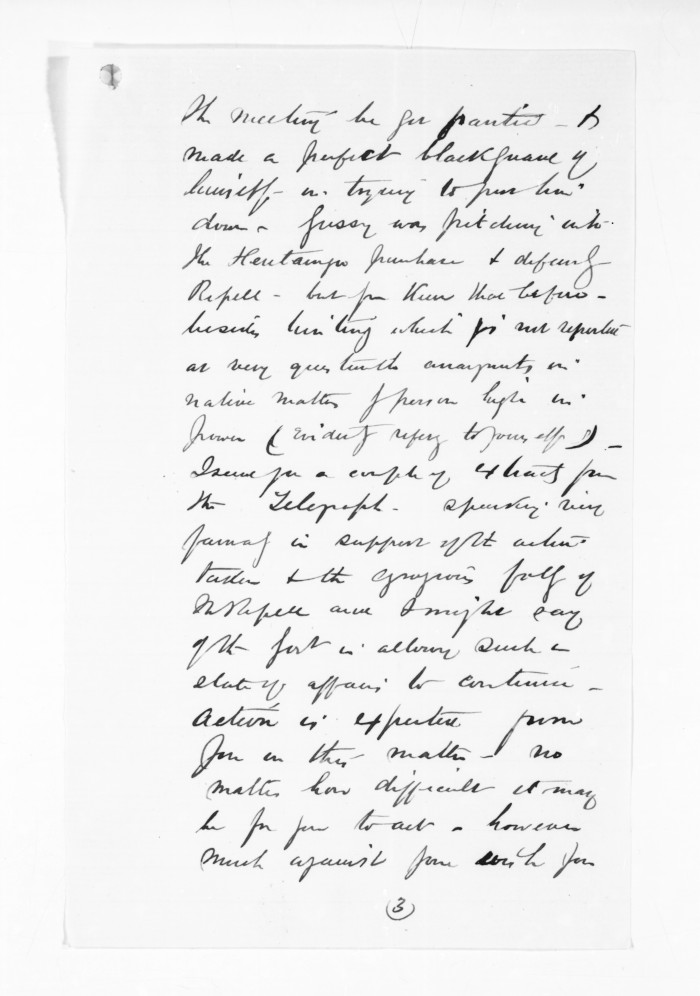 the meeting he got
made a perfect blackguard of
himself in trying to put him
down - Gussy was pitching into
the Heretaunga purchase & defending
Russell - but you knew that before -
besides hinting which is not reported
at very questionable arrangements in
native matters of persons high in
power (evidently refering to yourself) -
I send you a couple of extracts from
the Telegraph - speaking very
in support of the action
taken & the egregious folly of
and I might say
of the Govt in allowing such a
state of affairs to continue -
Action is expected from
you in this matter - no
matter how difficult it may
be for you to act - however
much against your wish you
(3)